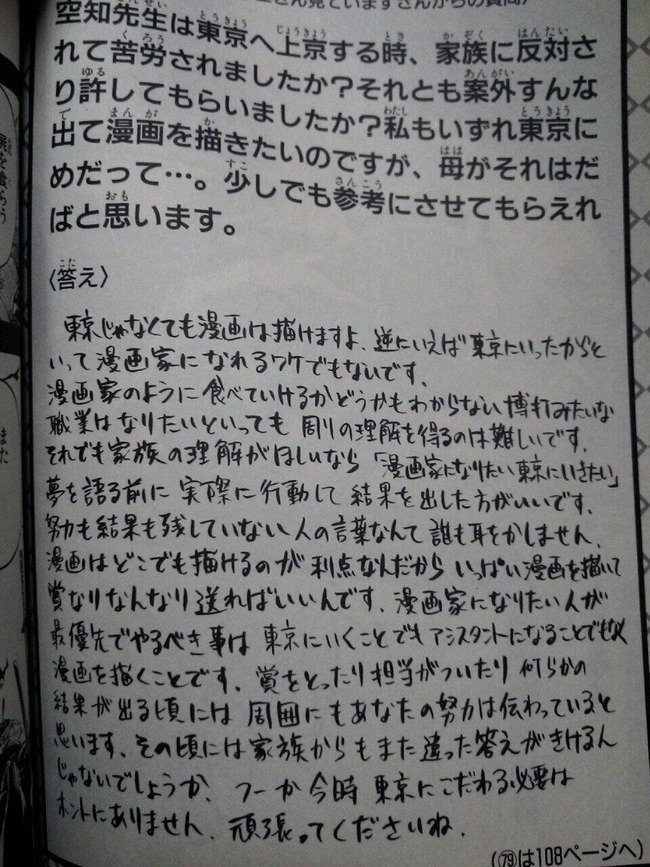 先生見ていますさんからの質問)
空知先生は東京へ上京する時、家族に反対さ
れて苦労されましたか?それとも案外すんな
り許してもらいましたか?私もいずれ東京に
出て漫画を描きたいのですが、母がそれはだ
めだって…。少しでも参考にさせてもらえれ
ばと思います。
〈答え〉
東京じゃなくても漫画は描けますよ、逆にいえば東京にいったからと
いって漫画家になれるワケでもないです。
漫画家のように食べていけるかどうかもわからない博打みたいな
職業はなりたいといっても周りの理解を得るのは難しいです。
それでも家族の理解がほしいなら「漫画家になりたい東京にいきたい」
夢を語る前に実際に行動して結果を出した方がいいです。
努力も結果も残していない人の言葉なんて誰も耳をかしません。
漫画はどこでも描けるのが利点なんだからいっぱい漫画を描いて
賞なりなんなり送ればいいんです、漫画家になりたい人が
最優先でやるべき事は東京にいくことでもアシスタントになることでもなく
漫画を描くことです。賞をとったり担当がついたり何らかの
結果が出る頃には周囲にもあなたの努力は伝わっていると
思います、その頃には家族からもまた違った答えがきけるん
じゃないでしょうか、つーか今時東京にこだわる必要は
ホントにありません、頑張ってくださいね。
(79は108ページへ)